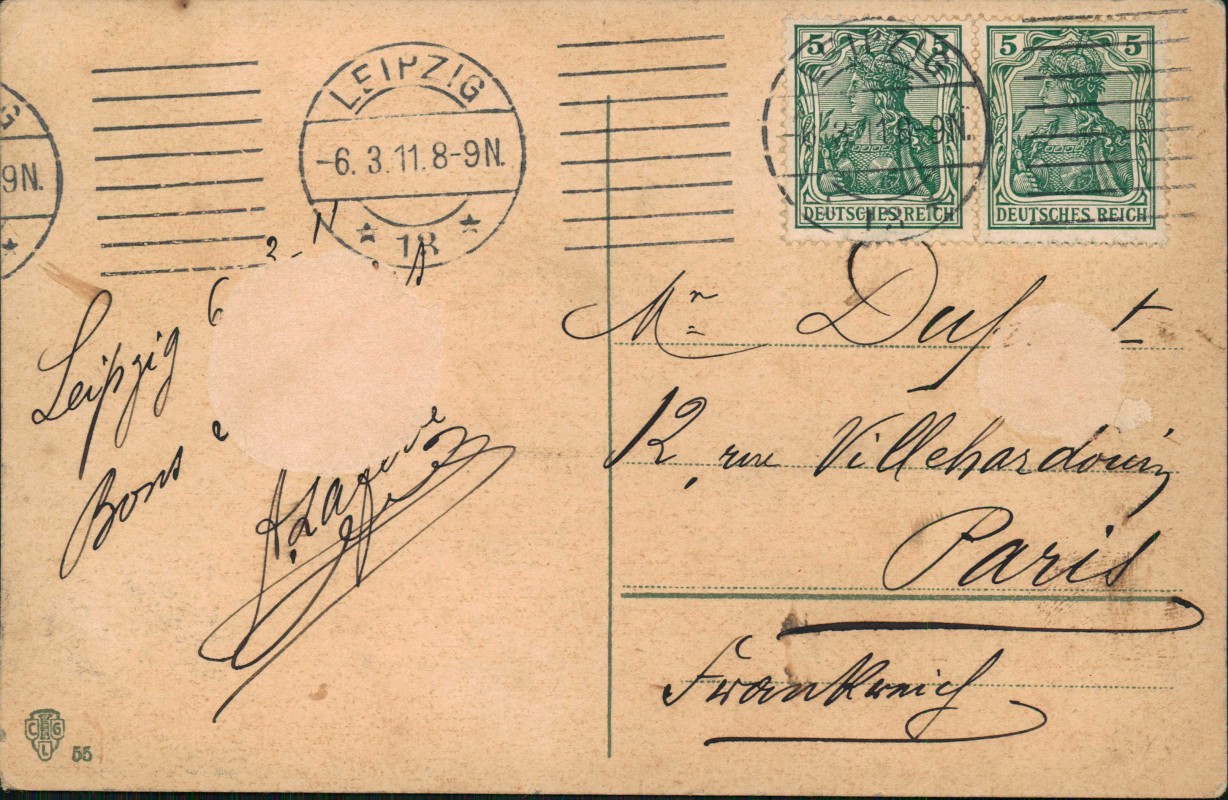 LEIPZIG
-6.3.11.8-9N.
* 18 *
9N.
LEIPZIG
-6.3.11.8-9N.
5 5
DEUTSCHES REICH
5 5
DEUTSCHES REICH
Leipzig 6
Bons
Mr
12, rue Villehardouin
Paris
Frankreich
CGL
55